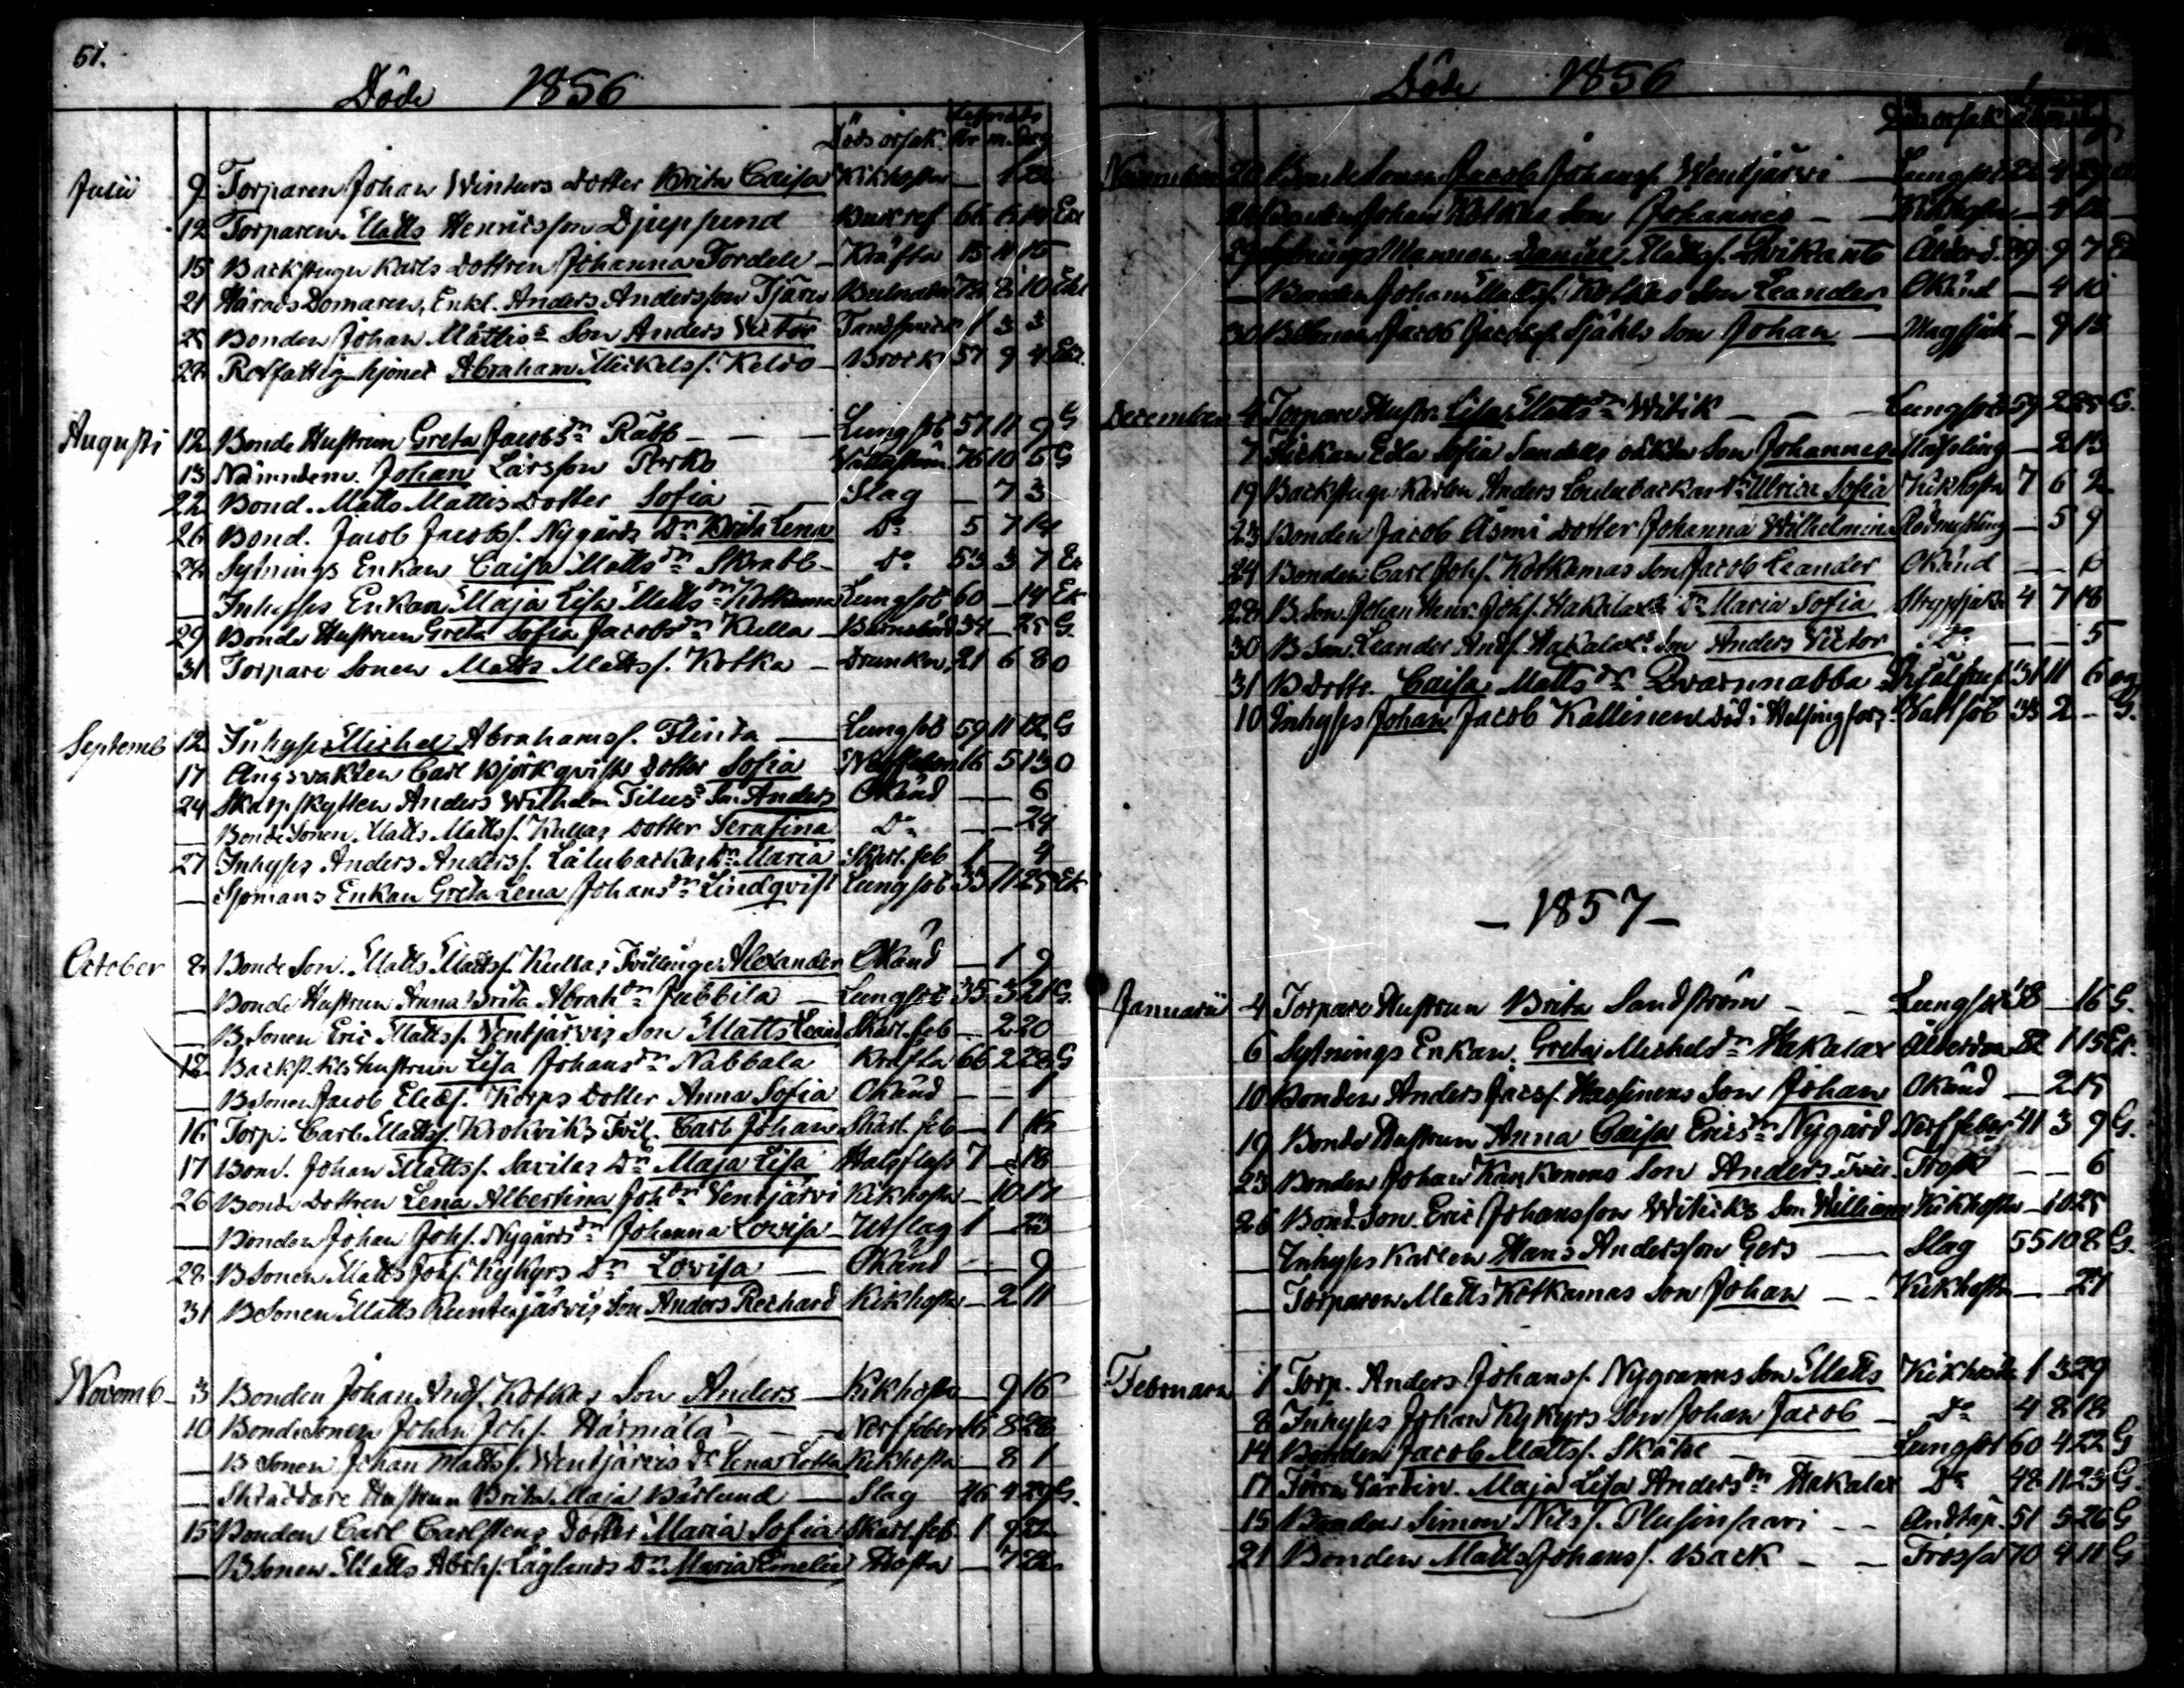 51.
Döde 1856
Lefnads
Döds orsak. År m. Dag
Julii 9 Torparen Johan Winters dotter Brita Caisa Kikhosta — 1 22
12 Torparen Matts Henricsson Djupsund 66 6 Ex
15 Backstugu Karls dottren Johanna Tordele — Kräfta 15 11 15
21 Härads Domaren, Enkl. Anders Andersson Tjäru 72 8 10 Ekl
25 Bonden Johan Mattis Son Anders Victor Tandsprick 1 3 3
28 Rotfattig hjonet Abraham Mickelss. Keldo — Brock 57 9 4 Ekl.
Augusti 12 Bonde Hustrun Greta Jacobsdr Räbb — — — Lungsot 57 11 9 G
13 Nämndem. Johan Larsson Porko 76 10 6 G
22 Bond. Matts Mattis Dotter Sofia — — Slag — 7 3
26 Bond. Jacob Jacobss. Nygårds Dr Brita Lena Do 5 7 14
28 Sytnings Enkan Caisa Mattsdr Skrabb — Do 53 3 7 Ek
— Inhyses Enkan Maja Lisa Mattsdr Kotkamas Lungsot 60 — 14 Ek
29 Bonde Hustrun Greta Sofia Jacobsdr Kulla — Barnsbörd 34 — 25 G.
31 Torpare Sonen Matts Mattss. Kotka — Drunkn. 21 6 8 O
Septemb 12 Inhyses Michel Abrahamss. Flinta — Lungsot 59 11 12 G
17 Ängsvakten Carl Björkqvists dotter Sofia 16 5 13 O
24 Skarpskytten Anders Wilhelm Titus Sn. Anders Okänd — — 6
— Bonde Sonen Matts Mattss. Kullas dotter Serafina Do — — 24
27 Inhyses Anders Anderss. Lålubackas Dr Maria Skarl. feb 1 — 4
— Sjömans Enkan Greta Lena Johansdr Lindqvist Lungsot 33 11 25 Ek
October 8 Bonde Son. Matts Mattss. Kullas Tvillinge Alexander Okänd — 1 9
— Bonde Hustrun Anna Brita Abrahdr Jubbila — Lungsot 35 3 21 G.
— B. Sonen Eric Mattss. Ventjärvis Son Matts Leand Skarl. feb — 2 20
12 Backst. Kls Hustrun Lisa Johansdr Nabbala Kräfta 66 2 28 G
— B Sonen Jacob Eliess. Korps dotter Anna Sofia Okänd — — 1
16 Torp. Carl Mattss. Krokviks Tvil. Carl Johan Skarl. feb — 1 16
17 Bond. Johan Mattss. Savilas Dr Maja Lisa Halsflus 7 — 18
26 Bonde dottren Lena Albertina Johdr Ventjärvi Kikhosta — 10 17
— Bonden Johan Johs. Nygårds dr Johanna Lovisa — Utslag 1 — 23
28 B Sonen Matts Johs. Kykyrs Dr Lovisa — Okänd — — 9
31 B Sonen Matts Runtujärvis Son Anders Richard Kikhosta — 2 11
Novemb — 3 Bonden Johan Ands. Kotkas Son Anders — Kikhosta — 9 16
10 Bonde Sonen Johan Johs. Härmälä — — — Nerffeber 16 8 28
— B Sonen Johan Mattss. Wentjärvis Dr Lena Lotta Kikhosta — 8 1
— Skräddare Hustrun Brita Maja Bärlund — Slag 46 4 29 G.
15 Bonden Carl Carlstens Dotter Maria Sofia Skarl. feb. 1 9 22
— B Sonen Matts Abrhs. Låglands Dr Maria Emelie Hosta — 7 22
Döde 1856
Döds orsak
November 20 Bonde Sonen Jacob Johanss. Wentjärvi — Lungsot 22 4 29
Bonden Johan Kotkas Son Johannes — — Kikhosta — 4
29 Sytnings Mannen Daniel Mattss. Ålderd. 79 9 7
— Bonden Johan Mattss. Kotkas Son Leander Okänd — 4 10
30 Jacob Jacobss. Sjöhls Son Johan — Magsjuk — 9 13
December 4 Torpare Hustr. Lisa Mattsdr Witik — — — Lungsot 59 2 25 G.
7 Flickan Eda Sofia Sandells oäkta Son Johannes Mässling — 2 13
19 Backstugu Karlen Anders Loulubackas Dr Ulrica Sofia Kikhosta 7 6 2
23 Bonden Jacob Åsmi dotter Johanna Wilhelmina — 5 9
24 Bonden Carl Johs. Kotkamas Son Jacob Leander Okänd — — 6
28 B. Son. Johan Henr. Johs. Hakalax Dr Maria Sofia Strypsjuka 4 7 18
30 B Son. Leander Ands. Hakalax Son Anders Victor Do — — 5
31 B Dottr. Caisa Mattsdr Qvarnnabba 31 11 6 og
10 Inhyses Johan Jacob Kallinen död i Helsingfors Vattsot 33 2 — G.
— 1857 —
Januarii 4 Torpare Hustrun Brita Sandström — — Lungsot 38 — 16 G.
6 Sytnings Enkan Greta Michelsdr Hakalax Ålderdom 82 1 15 Ek.
10 Bonden Anders Jacss. Hassinens Son Johan Okänd — 2 15
19 Bonde Hustrun Anna Caisa Ericsdr Nygård Nerffeber 41 3 9 G.
23 Bonden Johan Kankonens Son Anders Tvil. Trosk — — 6
26 Bond. Son. Eric Johansson Witicks Son William Kikhosta — 10 25
— Inhyses Karlen Hans Andersson Gers — Slag 55 10 8 G.
— Torparen Matts Kotkamas Son Johan — — Kikhosta — — 27
Februari 1 Torp. Anders Johanss. Nygranns Son Matts Kikhosta 1 3 29
8 Inhyses Johan Kykyrs Son Johan Jacob — Do 4 8 18
14 Bonden Jacob Mattss. Skåtse — — Lungsot 60 4 22 G
17 Maja Lisa Andersdr Hakalax Do 48 11 23 G.
15 Bonden Simon Nilss. Plusinsaari — — Andtäp. 51 5 26 G
21 Bonden Matts Johanss. Back — — Frossa 70 4 11 G